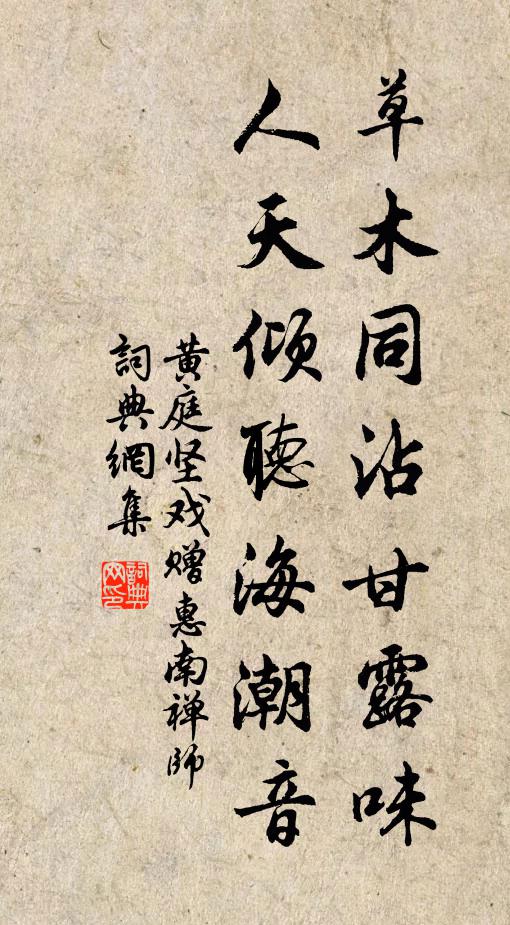 草木同沾甘露味
人天倾聽海潮音
黄庭坚戏赠惠南禅师
詞典網集
詞典网印